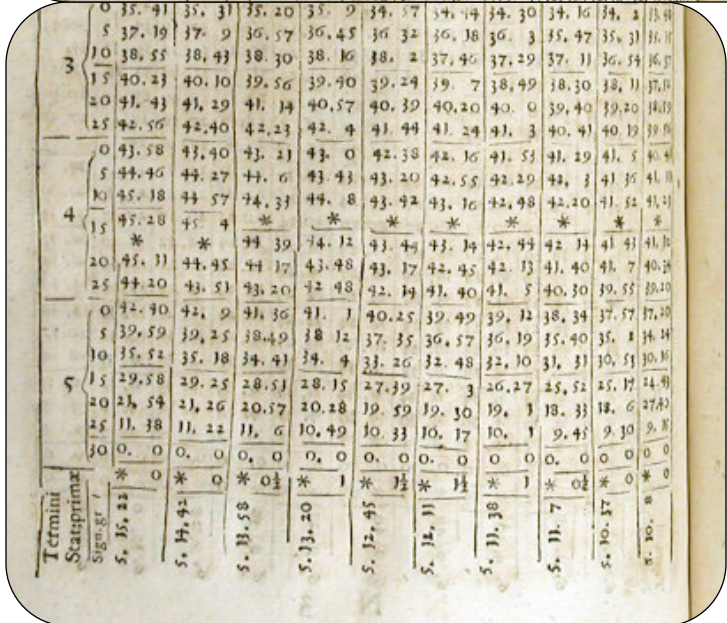 0 35. 41 35. 31 35. 20 35. 9 34. 57 34. 44 34. 30 34. 16 34. 2
5 37. 19 37. 9 36. 57 36. 45 36 32 36. 18 36. 3 35. 47 35. 31
3 10 38. 55 38. 43 38. 30 38. 16 38. 2 37. 46 37. 29 37. 11 36. 54
15 40. 23 40. 10 39. 56 39. 40 39. 24 39. 7 38, 49 38. 30 38, 11
20 41. 43 41, 29 41. 14 40, 57 40. 39 40, 20 40. 0 39, 40 39, 20
25 42. 56 42, 40 42, 23 42. 4 41. 44 41. 24 41, 3 40. 41 40. 19
0 43. 58 43, 40 43. 21 43. 0 42. 38 42. 16 41. 53 41. 29 41. 5
5 44. 46 44. 27 44. 6 43. 43 43. 20 42. 55 42. 29 42, 3 41 36
4 10 45. 18 44 57 44, 33 44. 8 43. 42 43, 16 42, 48 42. 20 41. 52
15 45. 28 45 4 * * * * * * * *
* * 44 39 44. 12 43. 44 43. 14 42, 44 42 14 41 43
20 45. 11 44. 45 44 17 43. 48 43, 17 42. 45 42. 13 41, 40 41. 7
25 44. 20 43. 51 43, 20 42 48 42. 14 41. 40 41. 5 40. 30 39. 55 39, 20
0 42. 40 42, 9 41, 36 41. 1 40. 25 39. 49 39, 12 38, 34 37. 57 37, 20
5 39, 59 39, 25 38, 49 38 12 37. 35 36, 57 36, 19 35. 40 35. 1
10 35. 52 35. 18 34. 41 34. 4 33. 26 32. 48 32, 10 31, 31 30, 53
5 15 29, 58 29. 25 28. 51 28. 15 27. 39 27. 3 26, 27 25, 52 25. 17
20 21, 54 21, 26 20. 57 20. 28 19. 59 19. 30 19, 1 18. 33 18. 6
25 11. 38 11. 22 11, 6 10, 49 10. 33 10. 17 10, 1 9. 45 9 30
30 0. 0 0. 0 0, 0 0, 0 0 0 0 0 0 0 0 0 0 0 0 0
* 0 * 0 * 0½ * 1 * 1½ * 1½ * 1 * 0½ * 0 * 0
Termini
Stat: primæ
Sign. gr 5. 15, 22 5. 14, 42 5. 13. 58 5. 13, 20 5. 12, 45 5. 12, 11 5. 11, 38 5. 11. 7 5. 10. 37 5. 10. 8